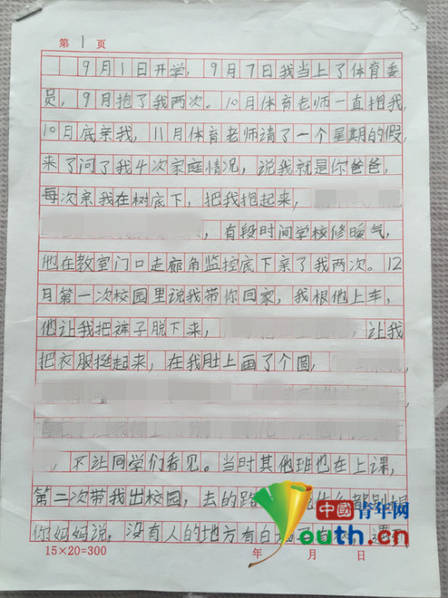 第 1 页
9月1日开学，9月7日我当上了体育委
员，9月抱了我两次。10月体育老师一直抱我，
10月底亲我，11月体育老师请了一个星期的假，
来了问了我4次家庭情况，说我就是你爸爸，
每次亲我在树底下，把我抱起来，
，有段时间学校修暖气，
他在教室门口走廊角监控底下亲了我两次。12
月第一次校园里说我带你回家，我跟他上车，
他让我把裤子脱下来，让我
把衣服挺起来，在我肚上画了个圆，
，不让同学们看见。当时其他班也在上课，
第二次带我出校园，去的路
你妈妈说，没有人的地方有白
15×20=300
年 月 日
中国青年网
Youth.cn